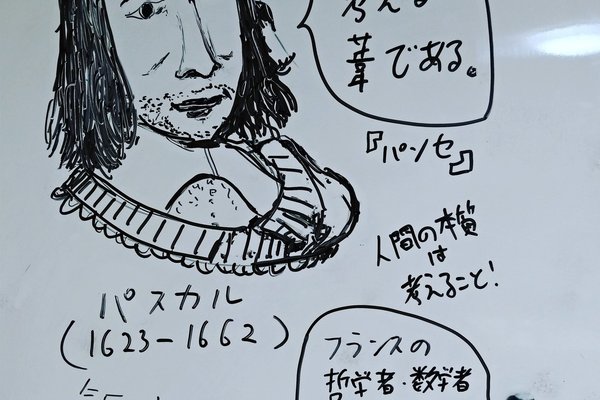 葦である。
『パンセ』
人間の本質
は
考えること!
パスカル
(1623-1662)
フランスの
哲学者・数学者